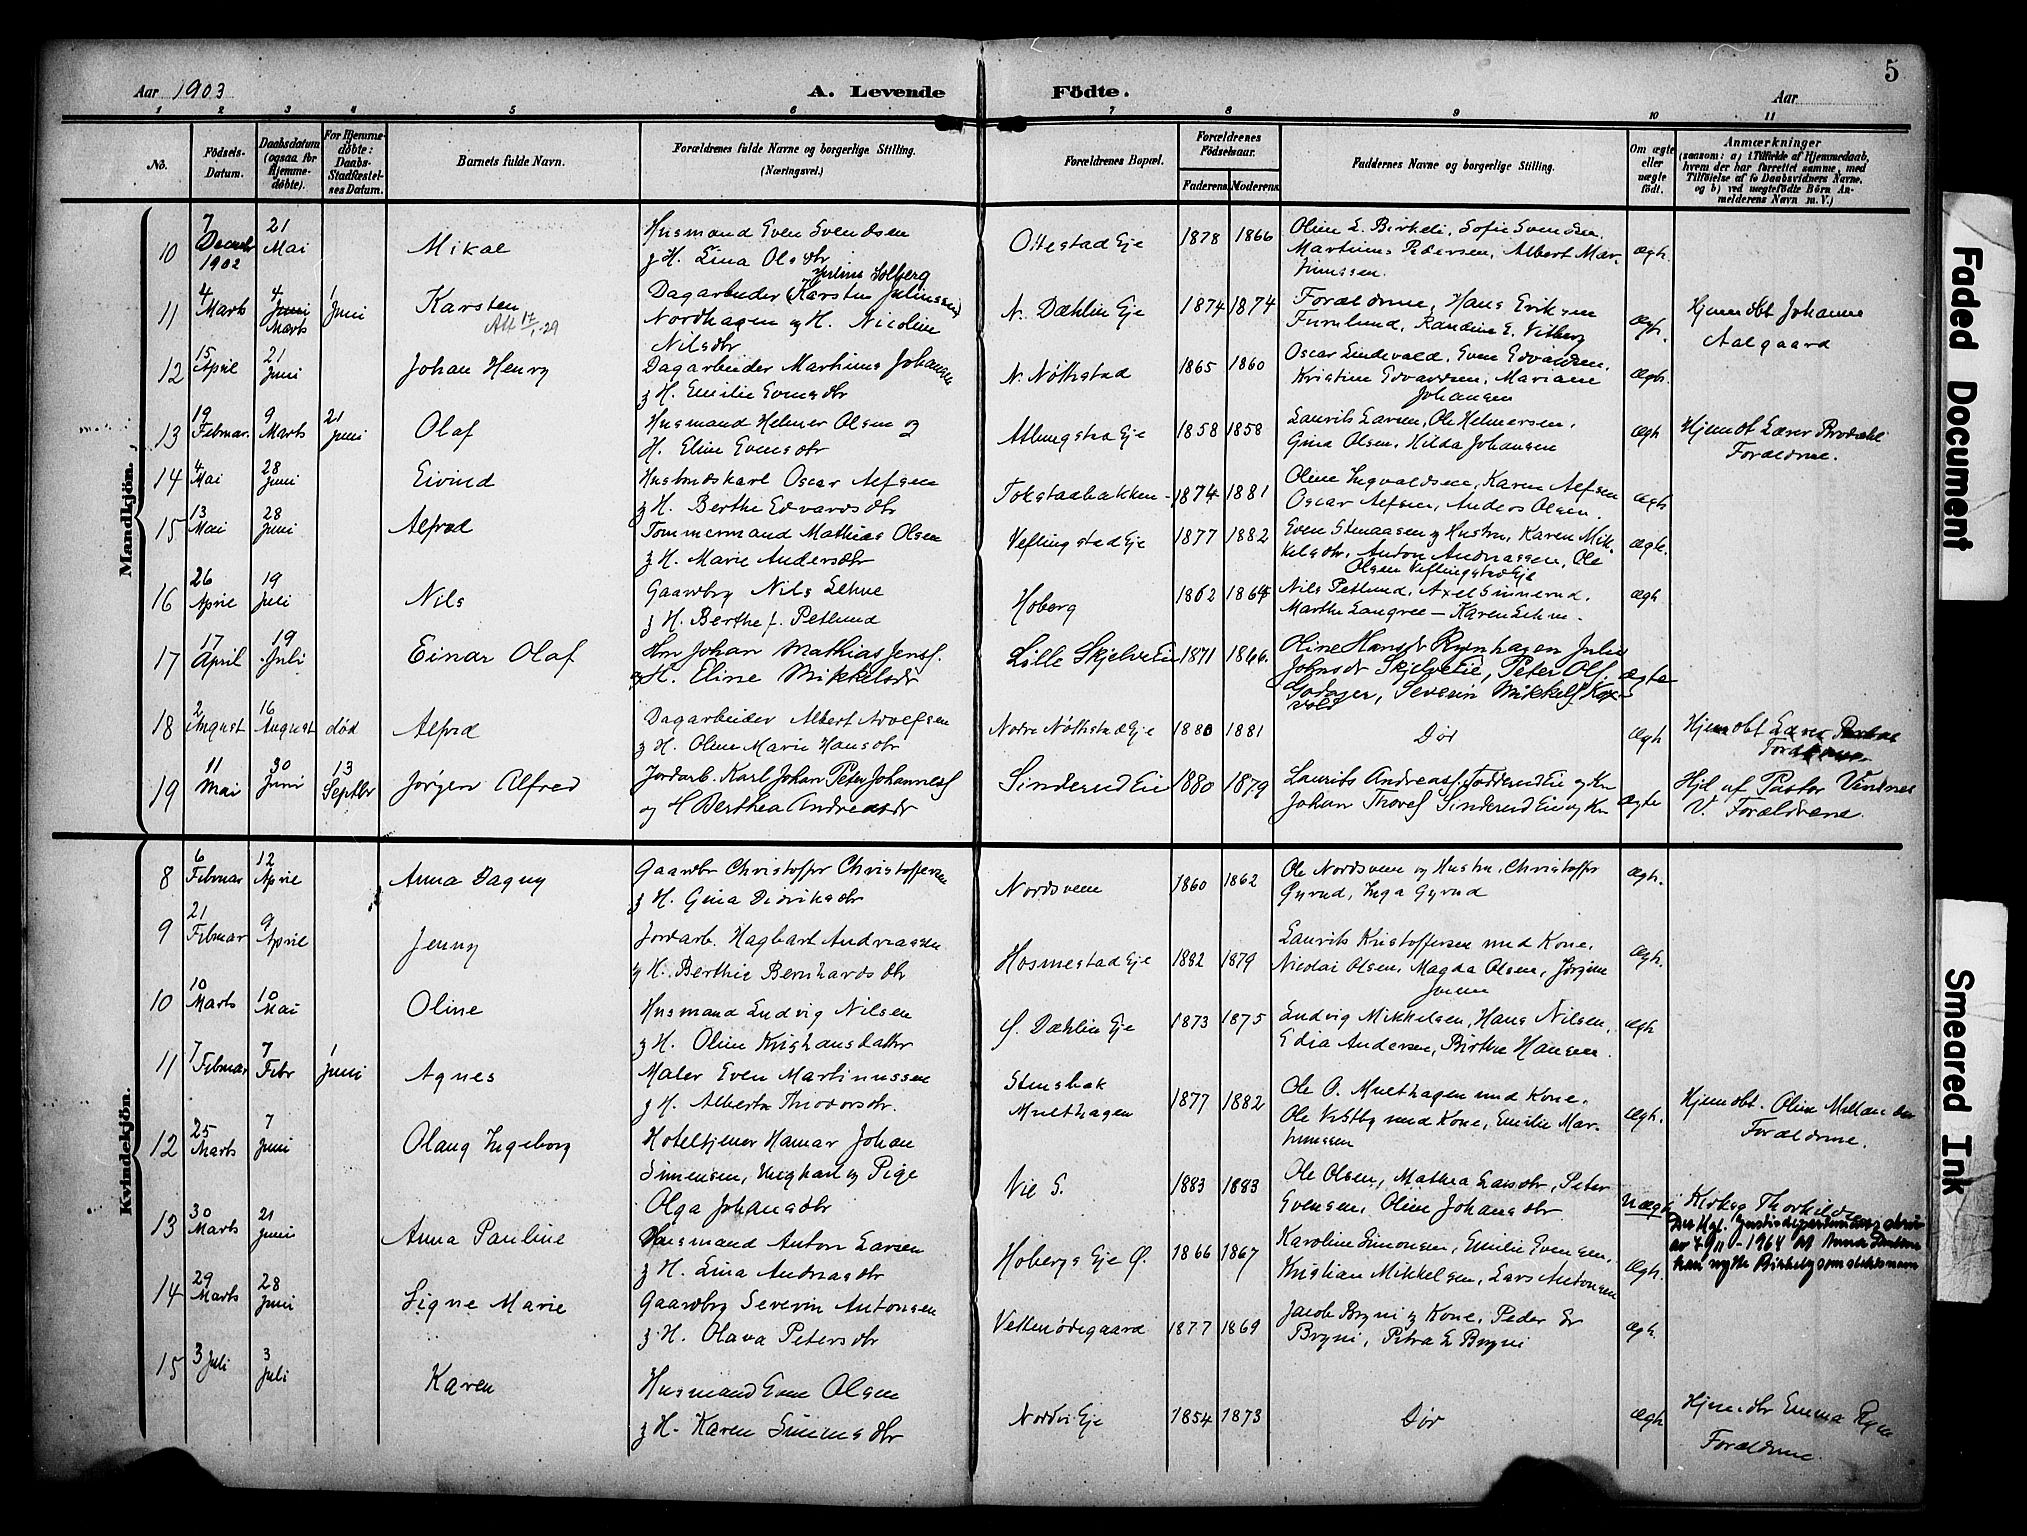 5
Aar 1903
A. Levende Födte.
Aar
1 2 3 4 5 6 7 8 9 10 11
No.
Födsels-Datum.
Daabsdatum (ogsaa for Hjemmedöbte).
For Hjemmedöbte: Daabs-Stadfæstelses Datum.
Barnets fulde Navn.
Forældrenes fulde Navne og borgerlige Stilling.
(Næringsvei.)
Forældrenes Bopæl.
Forældrenes Födselsaar.
Faderens. Moderens.
Faddernes Navne og borgerlige Stilling.
Om ægte eller uægte födt.
Anmærkninger
(saasom: a) i Tilfælde af Hjemmedaab, hvem der har forrettet samme, med Tilföielse af to Daabsvidners Navne, og b) ved uægtefödte Börn Anmelderens Navn m. V.)
Mandkjön.
10 7 Decmbr 1902 21 Mai Mikal
Husmand Even Evendsen
g H. Lina Olsdtr
Ottestad Eje 1878 1866
Oline L. Birkeli, Sofie Evendsen,
Martinus Pedersen, Albert Martinussen.
ægte.
11 4 Marts 4 Juni Marts 1 Juni Karsten
Julius Solberg
Dagarbeider (Karsten Juliussen)
Nordhagen og H. Nicoline
Nilsdtr
N. Dæhlin Eje 1874 1874
Forældrene, Hans Eriksen
Furulund, Randine E. Vitberg
ægt.
Hjemdbt Johanne
Aalgaard
12 15 April 21 Juni Johan Henry
Dagarbeider Martinus Johansen
g H. Emilie Evensdtr
N. Nøtkstad 1865 1860
Oscar Lindevald, Even Edvardsen,
Kristine Edvardsen, Mariane
Johansen
ægte.
13 19 Februar. 9 Marts 21 Juni Olaf
Husmand Helmer Olsen og
H. Eline Evensdtr
Atlungstad Eje 1858 1858
Laurits Larsen, Ole Helmersen,
Gina Olsen, Hilda Johansen
ægt
Hjemdbt Lærer Brodahl
Forældrene.
14 4 Mai 28 Juni Eivind
Husmdskarl Oscar Alfsen
g H. Berthe Edvardsdtr
Tokstadbakken 1874 1881
Oline Ingvaldsen, Karen Alfsen
Oscar Alfsen, Anders Olsen.
ægt
15 13 Mai 28 Juni Alfred
Tommermand Mathias Olsen
g H. Marie Andersdtr
Veflingstad Eje 1877 1882
Even Stenaasen g Hustru, Karen Mikkelsdtr, Anton Andreassen, Ole
Olsen Veflingstad Eje
ægte.
16 26 April 19 Juli Nils
Gaardbrg Nils Lehne
g H. Berthe f. Petlund
Hoberg 1862 1864
Nils Petlund, Axel Sinnerud,
Marthe Langree – Karen Lehne.
ægt
17 17 April 19 Juli Einar Olaf
Hm Johan Mathias Jensf.
og H. Eline Mikkelsdr
Lille Skjelve Eie 1871 1866.
Oline Hansdt Rynhagen Julie
Johnsdt Skjelve Eie, Peter Olf.
Godager, Severin Mikkelsf.
ægte
18 2 August 16 August død Alfred
Dagarbeider Albert Adolfsen
g H. Oline Marie Hansdtr
Nordre Nøtkstad Eje 1880 1881
Dør
ægt
Hjemdbt Lærer
19 11 Mai 30 Juni 13 Septbr Jørgen Alfred
Jordarb. Karl Johan Peter Johannesf
og H Berthea Andreasdr
Sinderud Eie 1880 1879
Laurits Andreasf. Todderud Eie og Kn
Johan Thorsf Sinderud Eie og Kn
ægte
Hjd af Pastor Vindnes
V. Forældrene.
Kvindekjön.
8 6 Februar 12 April Anna Dagny
Gaardbr Christoffer Christoffersen
g H. Gina Didriksdtr
Nordsveen 1860 1862
Ole Nordsveen og Hustru, Christoffer
Gyrud, Inga Gyrud
ægt.
9 21 Februar 9 April Jenny
Jordarb. Hagbart Andreassen
g H. Berthe Bernhardsdtr
Hosmestad Eje 1882 1879
Laurits Kristoffersen med Kone,
Nicolai Olsen, Magda Olsen, Jørgine
Jonsen
ægt.
10 10 Marts 10 Mai Oline
Husmand Ludvig Nilsen
g H. Oline Kristiansdatter
Ø. Dæhlin Eje 1873 1875
Ludvig Mikkelsen, Hans Nilsen,
Edia Andersen, Birthe Hansen.
ægt
11 7 Februar 7 Febr 1 Juni Agnes
Maler Even Martinussen
g H. Alberte Thodorsdtr.
Stensbak
Multhagen 1877 1882
Ole O. Multhagen med Kone,
Ole Vitberg med Kone, Emilie Martinussen
ægt.
Hjemdbt. Oline
Forældrene.
12 25 Marts 7 Juni Olaug Ingeborg
Hoteltjener Hamar Johan
Simensen, Ungkarl og Pige
Olga Johansdtr
Vie S. 1883 1883
Ole Olsen, Mathea Larsdtr, Peter
Evensen, Oline Johansdtr
uægt
Kirksg Thorkildsen
13 30 Marts 21 Juni Anna Pauline
Husmand Anton Larsen
g H. Lina Andreasdtr
Hobergs Eje Ø. 1866 1867
Karoline Simonsen, Emilie Evensen,
Kristian Mikkelsen, Lars Antonsen
ægt.
Det Kgl. Justisdepartements skriv
av 4/11-1964 at Anna Pauline
kan nytte Birkely som slektsnavn
14 29 Marts 28 Juni Signe Marie
Gaardbrg Severin Antonsen
g H. Olava Petersdtr
Vettenødegaard 1877 1869
Jacob Bryni g Kone, Peder Er
Bryni, Petra L Bryni
ægt.
15 3 Juli 3 Juli Karen
Husmand Even Olsen
g H. Karen Simensdtr
Nordvi Eje 1854 1873
Dør
ægt
Hjemdbt Emma
Forældrene.
Faded Document
Smeared Ink